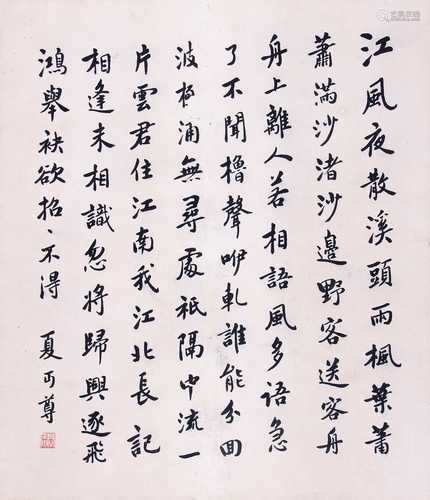 江風夜散溪頭雨楓葉蕭
蕭滿沙渚沙邊野客送客舟
舟上離人若相語風多語急
了不聞櫓聲咿軋誰能分回
波涌無尋處祇隔中流一
片雲君住江南我江北長記
相逢未相識忽將歸興逐飛
鴻舉袂欲招、不得
夏丏尊